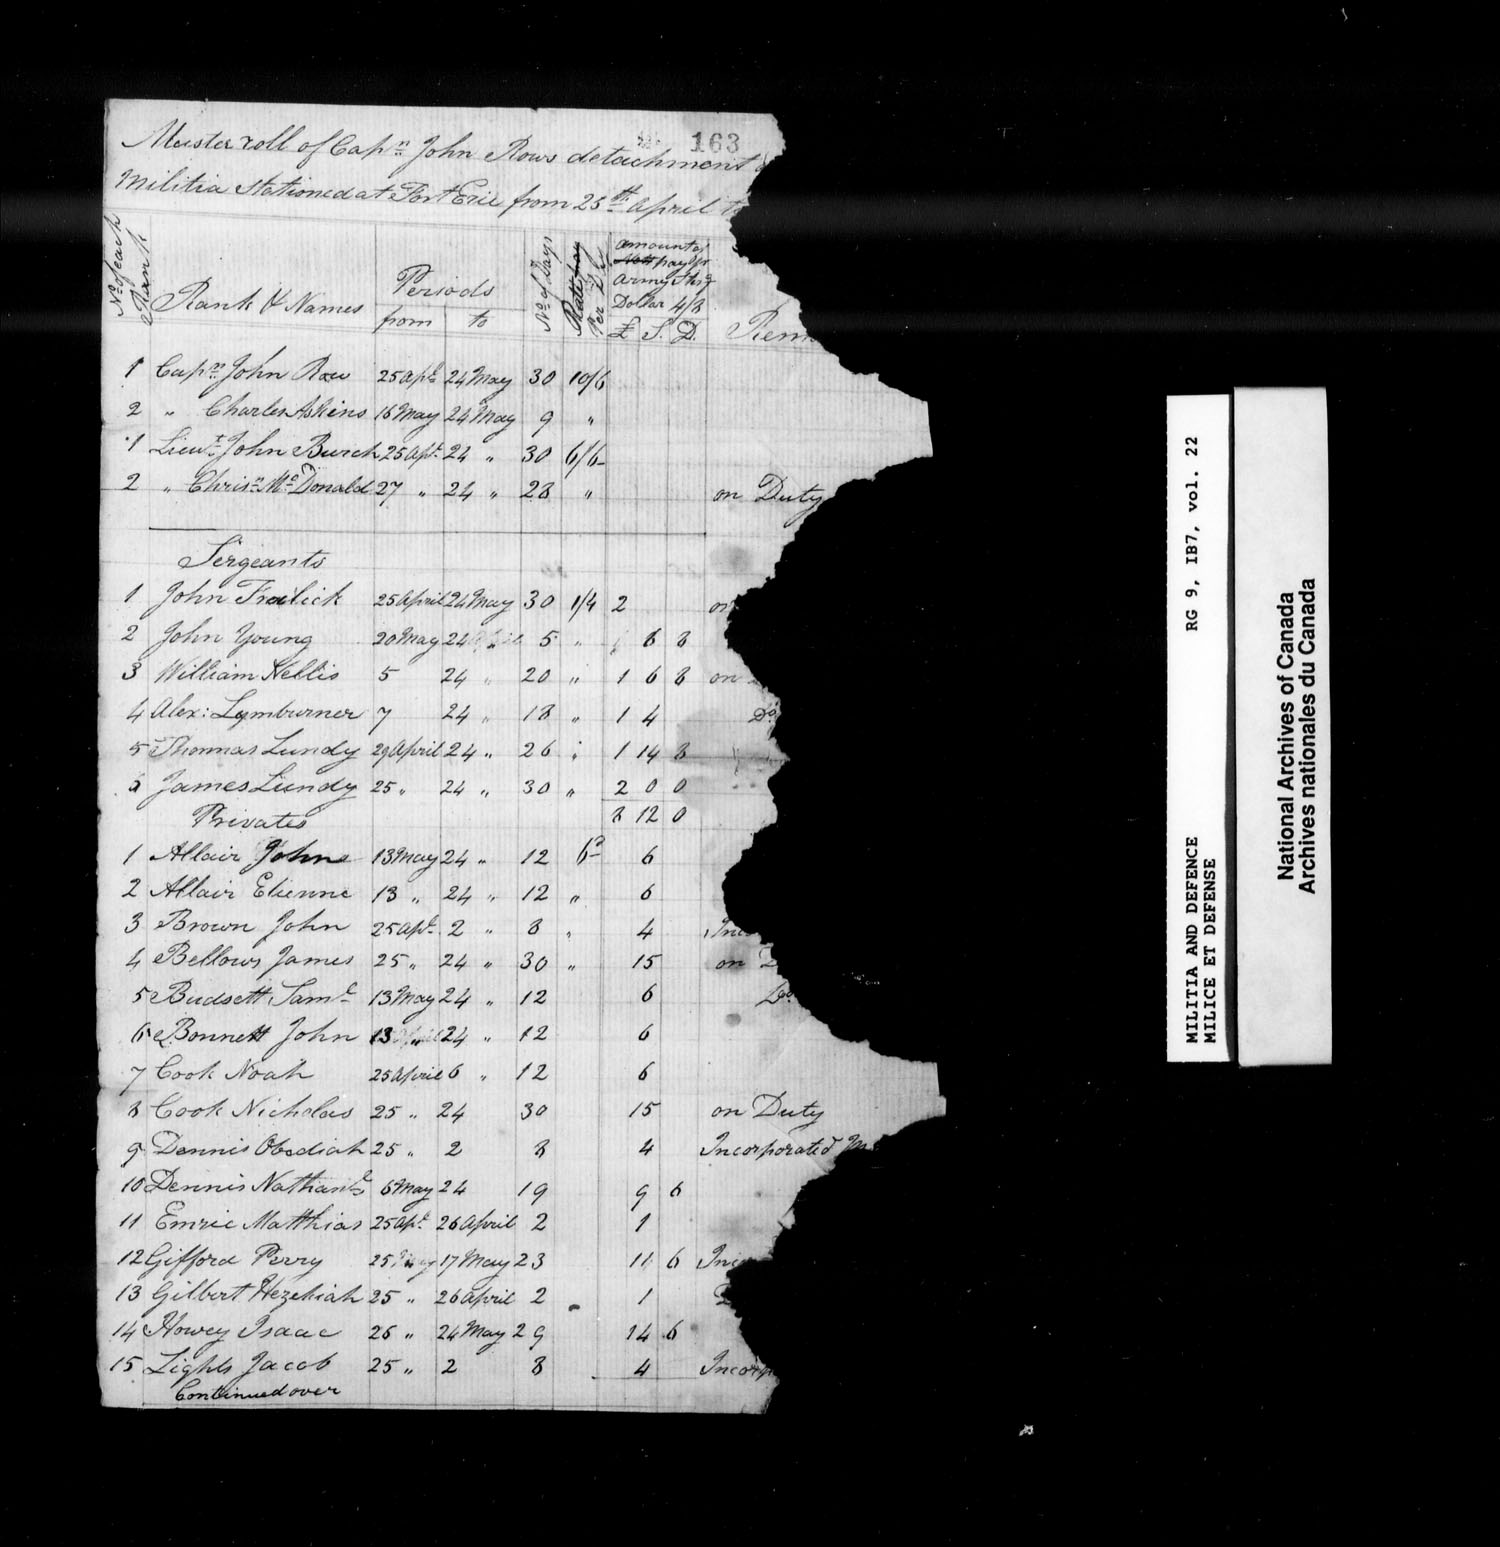 163
Muster roll of Capn. John Rows detachment
Militia Stationed at Fort Erie from 25th April to
No. of each Rank
Rank & Names
Periods
from to
No. of Days
Rate pay Per D
Amount of
Nett pay
Army
Dollar 4/8
£ S. D.
Rem
1 Capn. John Row 25 Apl. 24 May 30 10/6
2 " Charles Askins 16 May 24 May 9 "
1 Lieut. John Burch 25 Apl. 24 " 30 6/6
2 " Chrisr. McDonald 27 " 24 " 28 " on Duty
Sergeants
1 John Fralick 25 April 24 May 30 1/4 2 on
2 John Young 20 May 24 " 5 " 6 8
3 William Nellis 5 24 " 20 " 1 6 8 on
4 Alex: Lymburner 7 24 " 18 " 1 4 Do
5 Thomas Lundy 29 April 24 " 26 " 1 14 8
6 James Lundy 25 " 24 " 30 " 2 0 0
8 12 0
Privates
1 Allair John 13 May 24 " 12 6d 6
2 Allair Etienne 13 " 24 " 12 " 6
3 Brown John 25 Apl. 2 " 8 " 4 Inco
4 Bellows James 25 " 24 " 30 " 15 on D
5 Budsett Saml. 13 May 24 " 12 6 Do
6 Bonnett John 13 " 24 " 12 6
7 Cook Noah 25 April 6 " 12 6
8 Cook Nicholas 25 " 24 30 15 on Duty
9 Dennis Obediah 25 " 2 8 4 Incorporated M
10 Dennis Nathanl. 6 May 24 19 9 6
11 Emrie Matthias 25 Apl. 26 April 2 1
12 Gifford Perry 25 " 17 May 23 11 6 Inc
13 Gilbert Hezekiah 25 " 26 April 2 1 D
14 Howey Isaac 26 " 24 May 29 14 6
15 Lights Jacob 25 " 2 8 4 Incorp
Continued over
RG 9, IB7, vol. 22
MILITIA AND DEFENCE
MILICE ET DEFENSE
National Archives of Canada
Archives nationales du Canada